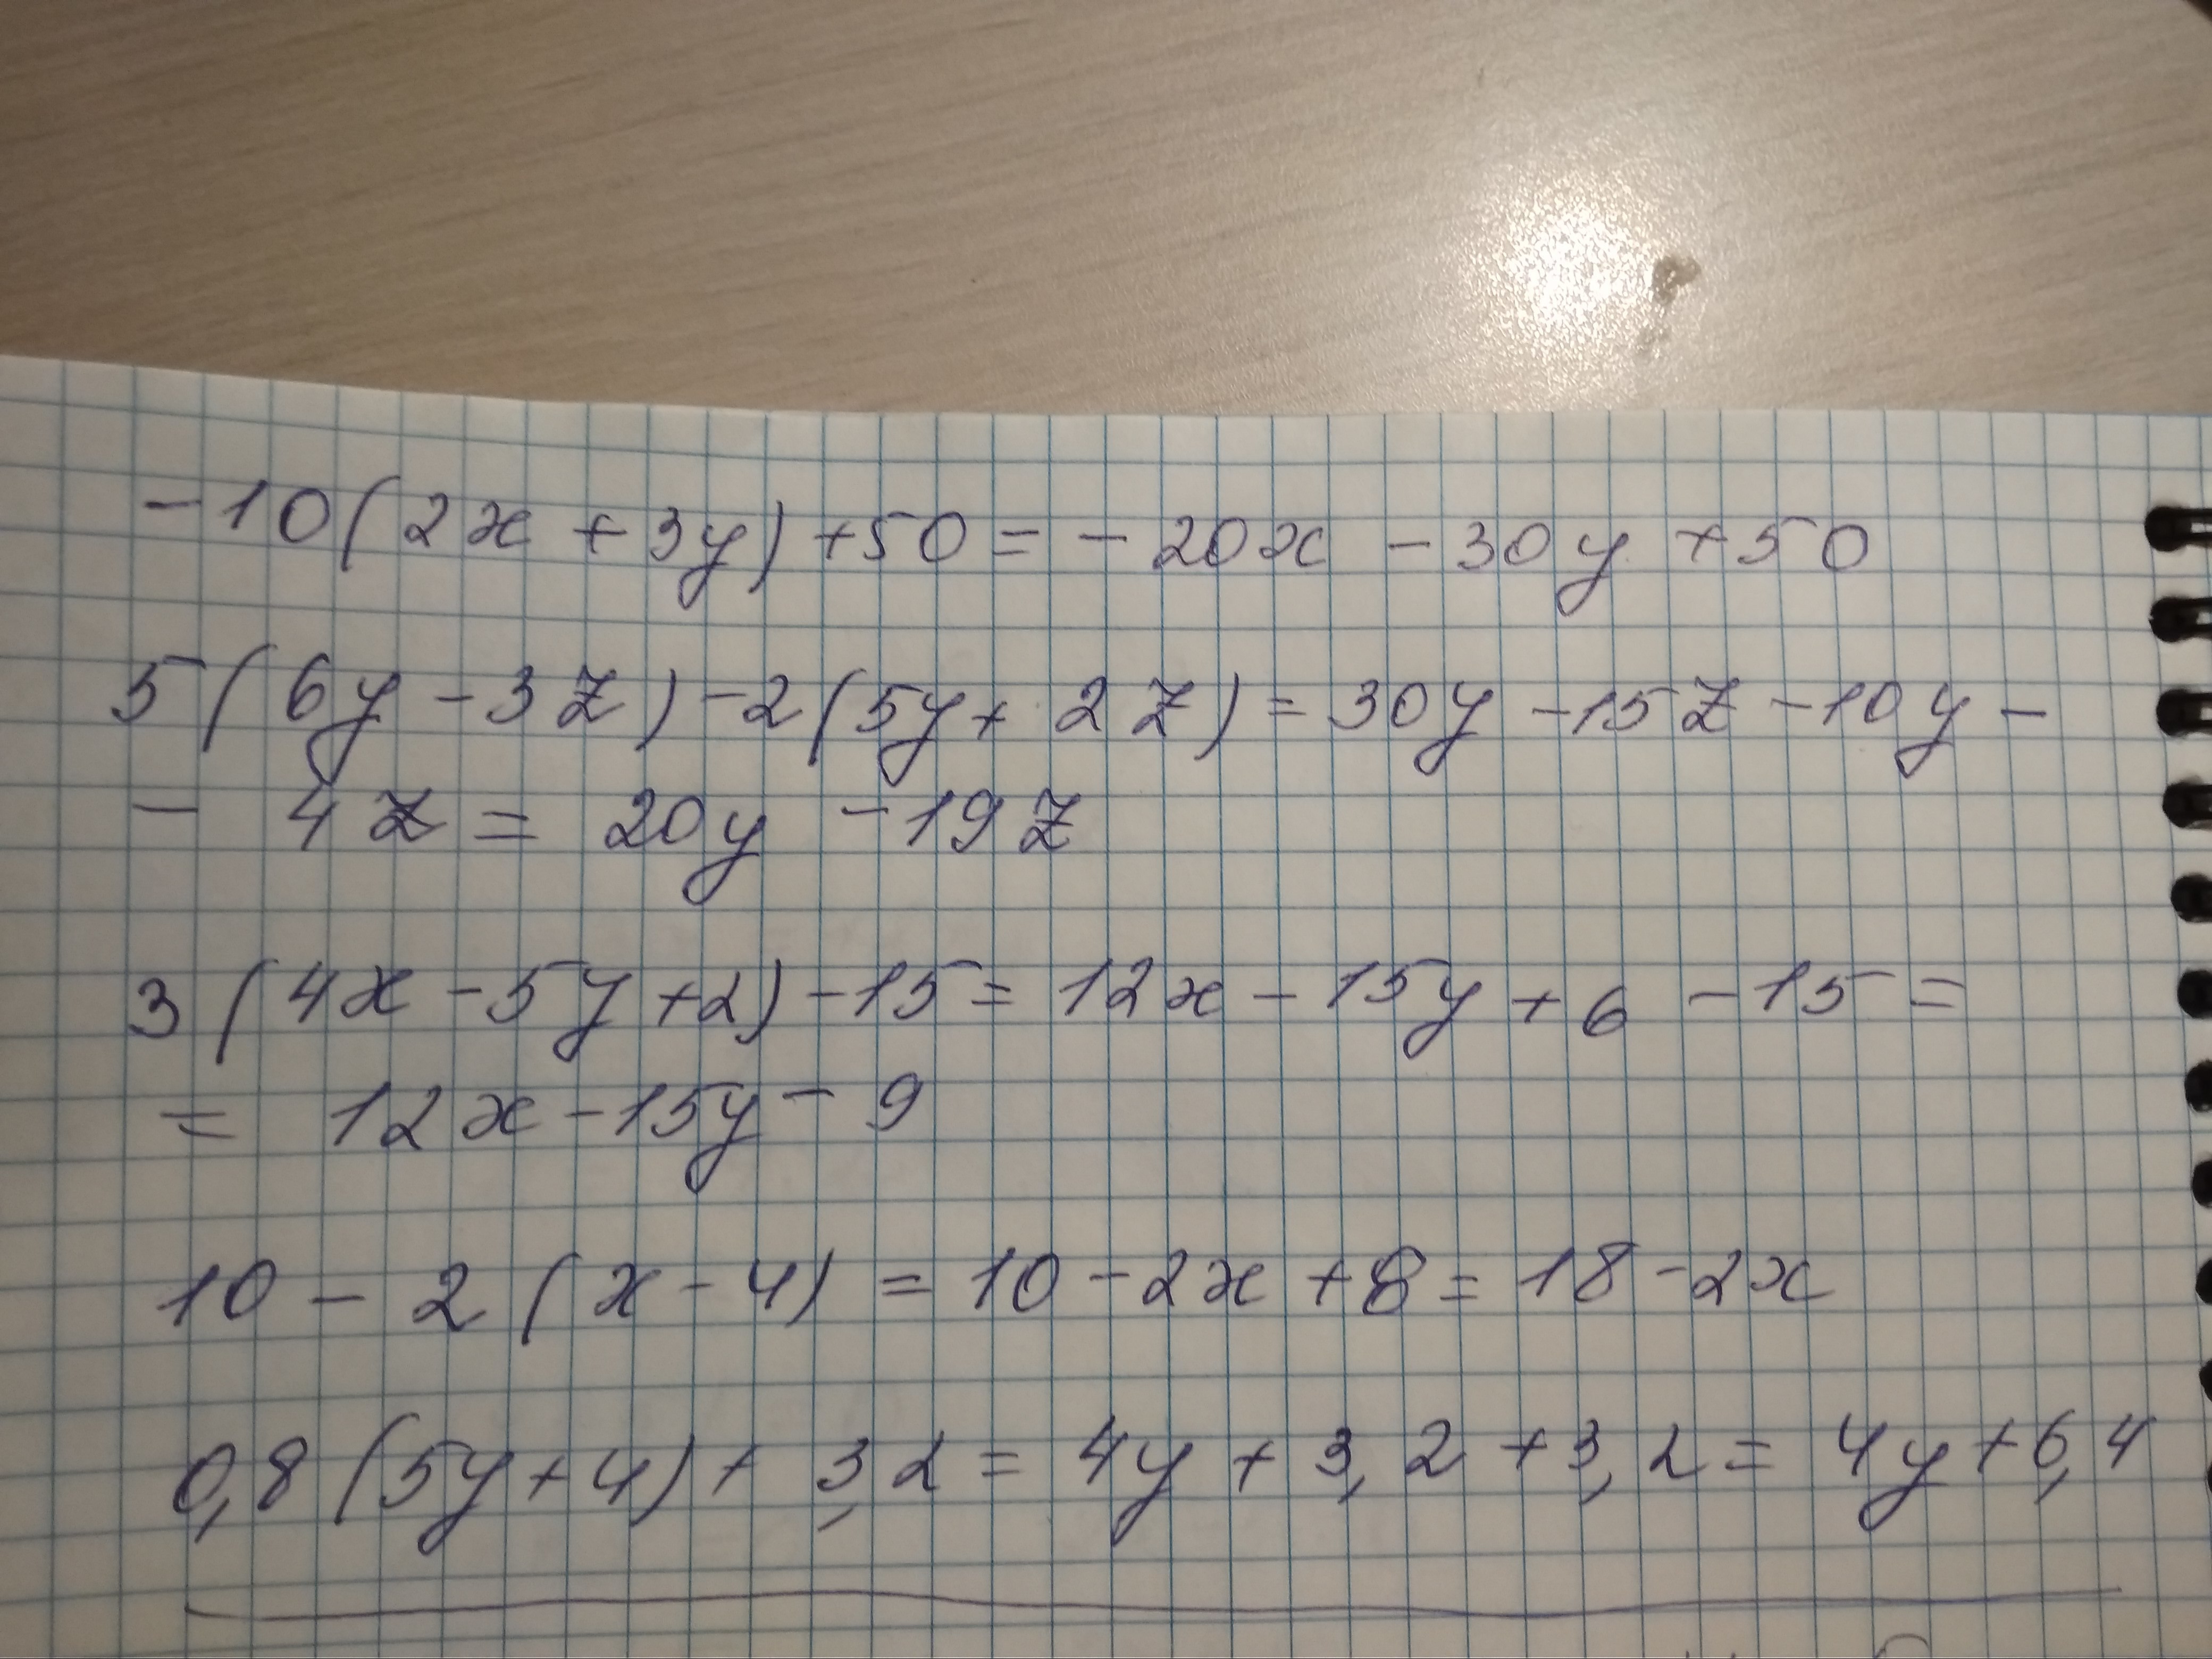 -10(2x + 3y) +50 = -20x -30y +50
5(6y -3z) -2(5y+ 2z) = 30y -15z -10y -
- 4z = 20y -19z
3(4x -5y +2) -15 = 12x - 15y + 6 -15 =
= 12x -15y - 9
10 - 2(x - 4) = 10 -2x +8 = 18 -2x
0,8(5y+4) + 3,2 = 4y + 3,2 +3,2 = 4y +6,4